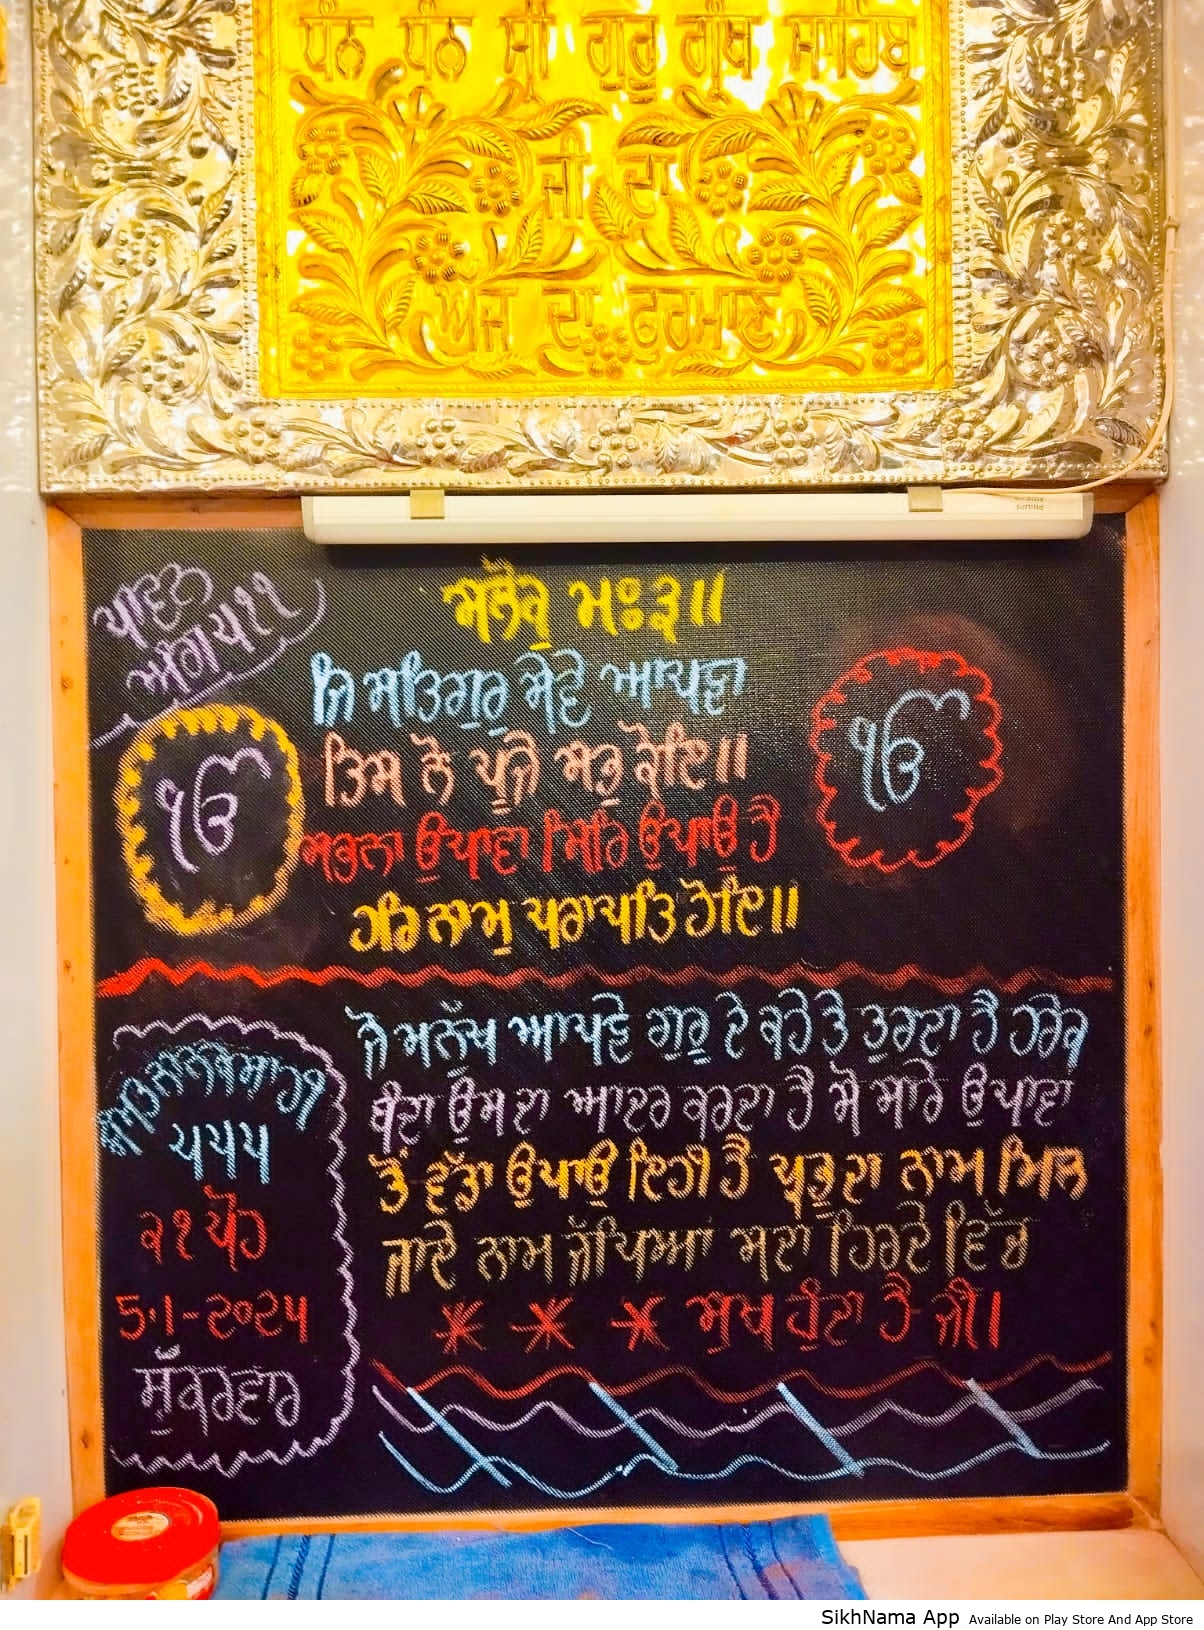 ਧੰਨ ਧੰਨ ਸ੍ਰੀ ਗੁਰੂ ਗ੍ਰੰਥ ਸਾਹਿਬ
ਜੀ ਦਾ
ਅੱਜ ਦਾ ਫੁਰਮਾਣ
PHILIPS
ਪਾਵਨ
ਅੰਗ ੫੧੧
ਸਲੋਕੁ ਮਃ ੩॥
ਜਿ ਸਤਿਗੁਰੁ ਸੇਵੇ ਆਪਣਾ
ਤਿਸ ਨੋ ਪੂਜੇ ਸਭੁ ਕੋਇ॥
ਸਭਨਾ ਉਪਾਵਾ ਸਿਰਿ ਉਪਾਉ ਹੈ
ਹਰਿ ਨਾਮੁ ਪਰਾਪਤਿ ਹੋਇ॥
ੴ
ੴ
ਜੋ ਮਨੁੱਖ ਆਪਣੇ ਗੁਰੂ ਦੇ ਕਹੇ ਤੇ ਤੁਰਦਾ ਹੈ ਹਰੇਕ
ਬੰਦਾ ਉਸ ਦਾ ਆਦਰ ਕਰਦਾ ਹੈ ਸੋ ਸਾਰੇ ਉਪਾਵਾ
ਤੋਂ ਵੱਡਾ ਉਪਾਉ ਇਹੀ ਹੈ ਪ੍ਰਭੂ ਦਾ ਨਾਮ ਮਿਲ
ਜਾਵੇ ਨਾਮ ਜੱਪਿਆਂ ਸਦਾ ਹਿਰਦੇ ਵਿੱਚ
ਸੁਖ ਹੁੰਦਾ ਹੈ ਜੀ।
ਸੰਮਤ ਨਾਨਕਸ਼ਾਹੀ
੫੫੫
੨੧ ਪੋਹ
5.1-੨੦੨੫
ਸ਼ੁੱਕਰਵਾਰ
SikhNama App Available on Play Store And App Store